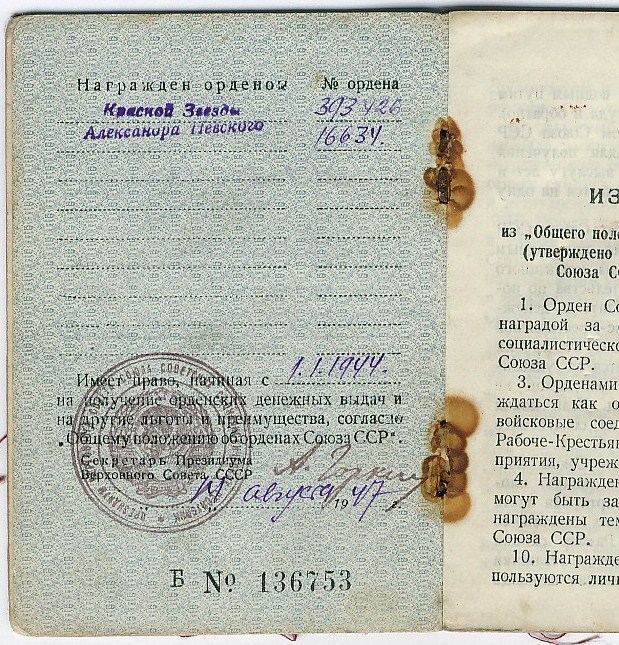 Награжден орденом № ордена
Красной Звезды 393426
Александра Невского 16634.
Имеет право, начиная с 1.1.1944.
на получение орденских денежных выдач и
на другие льготы и преимущества, согласно
„Общему положению об орденах Союза ССР“.
Секретарь Президиума
Верховного Совета СССР А. Горкин
14 августа 1947 г.
Б № 136753
ИЗ
из „Общего поло
(утверждено
Союза С
1. Орден Со
наградой за
социалистическо
Союза ССР.
3. Орденами
ждаться как о
войсковые соед
Рабоче-Крестья
приятия, учреж
4. Награжден
могут быть за
награждены тем
Союза ССР.
10. Награжде
пользуются личн